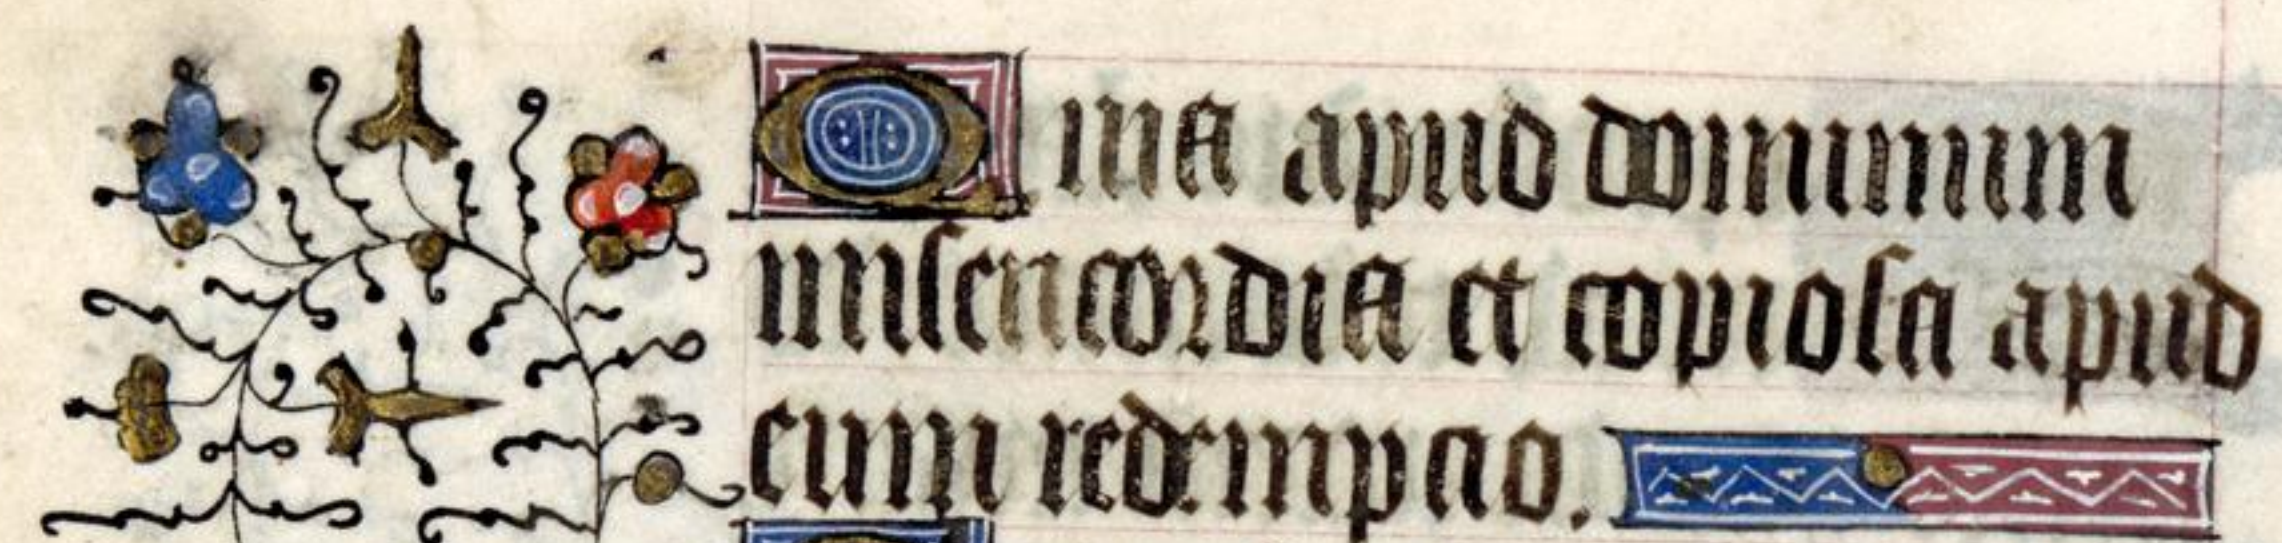 Quia apud dominum
misericordia et copiosa apud
eum redempcio.